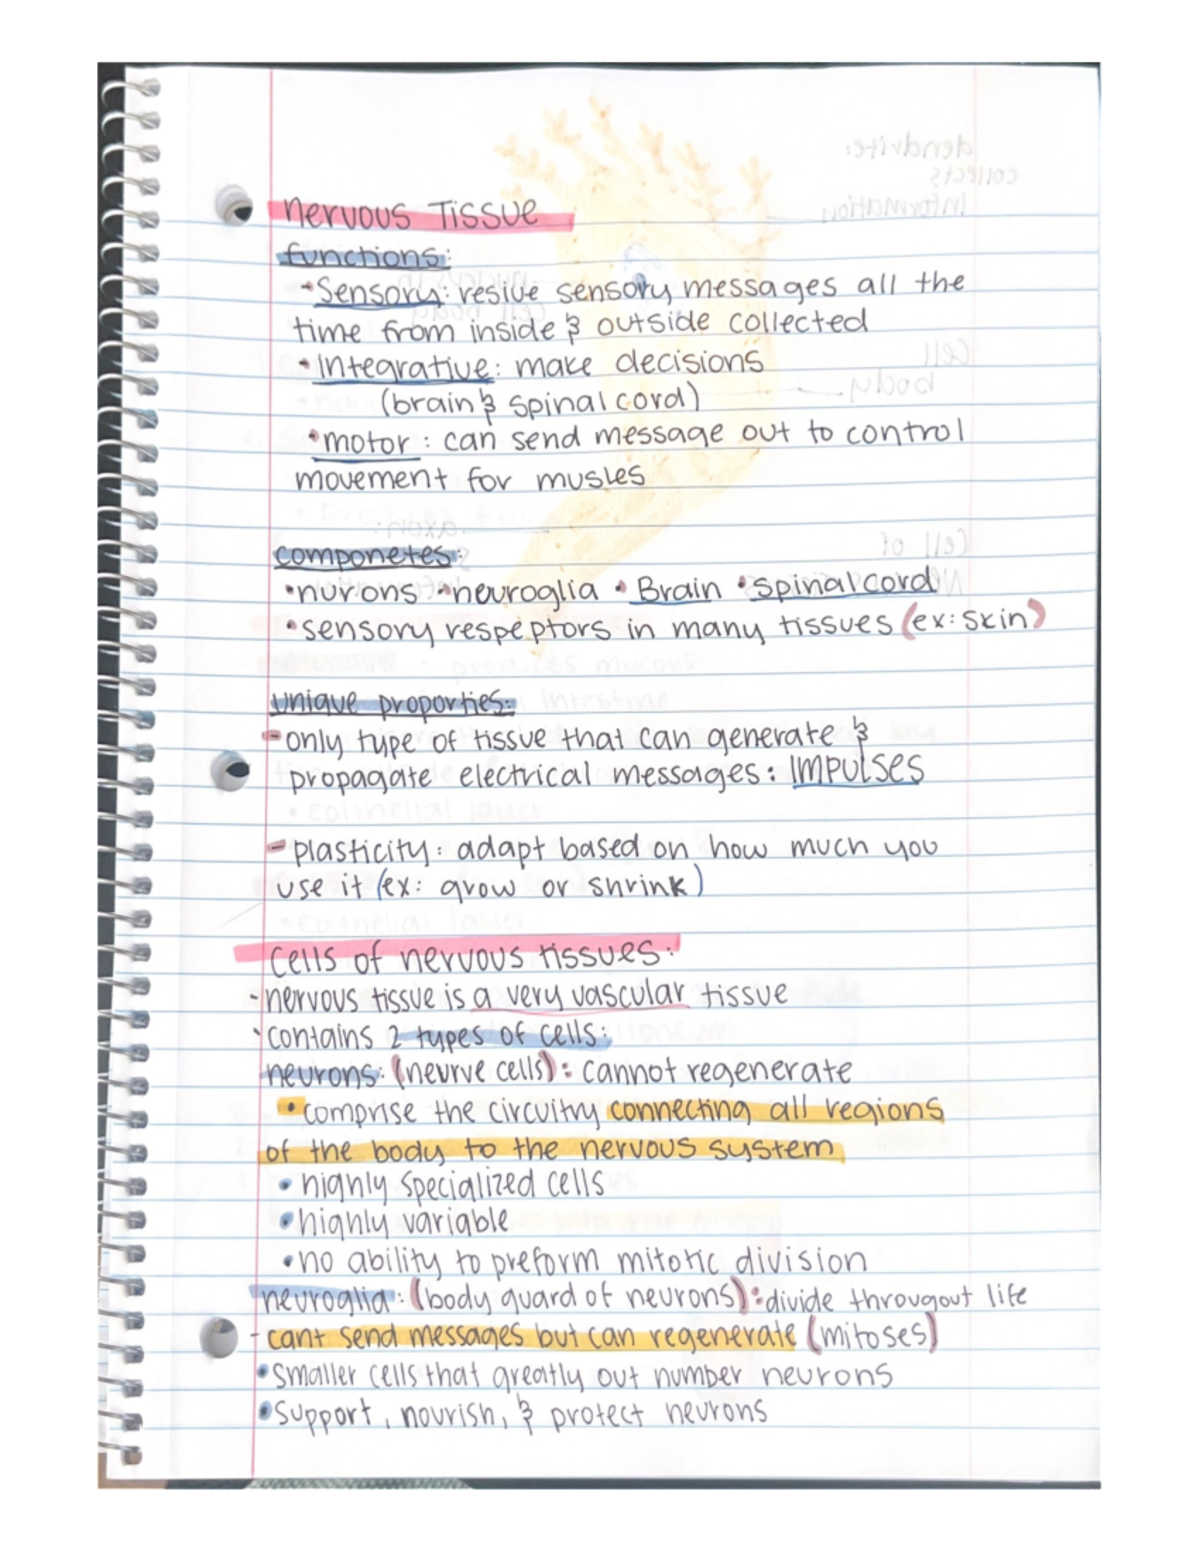 nervous Tissue
functions:
•Sensory: resive sensory messages all the
time from inside & outside collected
•Integrative: make decisions
(brain & spinal cord)
•motor: can send message out to control
movement for musles
componetes:
•nurons •neuroglia •Brain •spinal cord
•sensory respeptors in many tissues (ex: skin)
unique proporties:
-only type of tissue that can generate &
propagate electrical messages: IMPULSES
-plasticity: adapt based on how much you
use it (ex: grow or shrink)
Cells of nervous tissues:
-nervous tissue is a very vascular tissue
•contains 2 types of cells:
neurons: (neurve cells): cannot regenerate
•comprise the circuitry connecting all regions
of the body to the nervous system
•highly specialized cells
•highly variable
•no ability to preform mitotic division
neuroglia: (body guard of neurons): divide througout life
- cant send messages but can regenerate (mitoses)
•Smaller cells that greatly out number neurons
•Support, nourish, & protect neurons